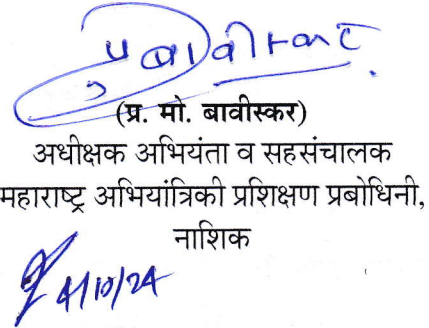 प्रबावीस्कर
(प्र. मो. बावीस्कर)
अधीक्षक अभियंता व सहसंचालक
महाराष्ट्र अभियांत्रिकी प्रशिक्षण प्रबोधिनी,
नाशिक
4/10/24